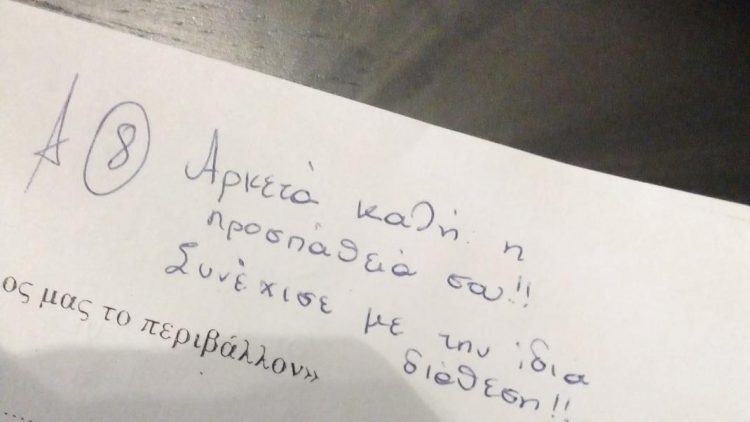 Α 8 Αρκετά καλή η
προσπάθειά σου!!
Συνέχισε με την ίδια
διάθεση!!
ος μας το περιβάλλον»